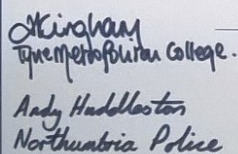 AKingham
TyneMetropolitan College.
Andy Huddleston
Northumbria Police